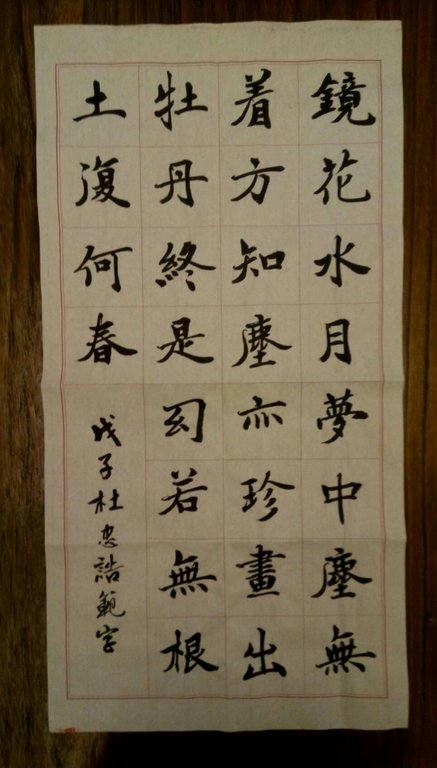 鏡花水月夢中塵無
着方知塵亦珍畫出
牡丹終是幻若無根
土復何春
戊子杜忠誥範字